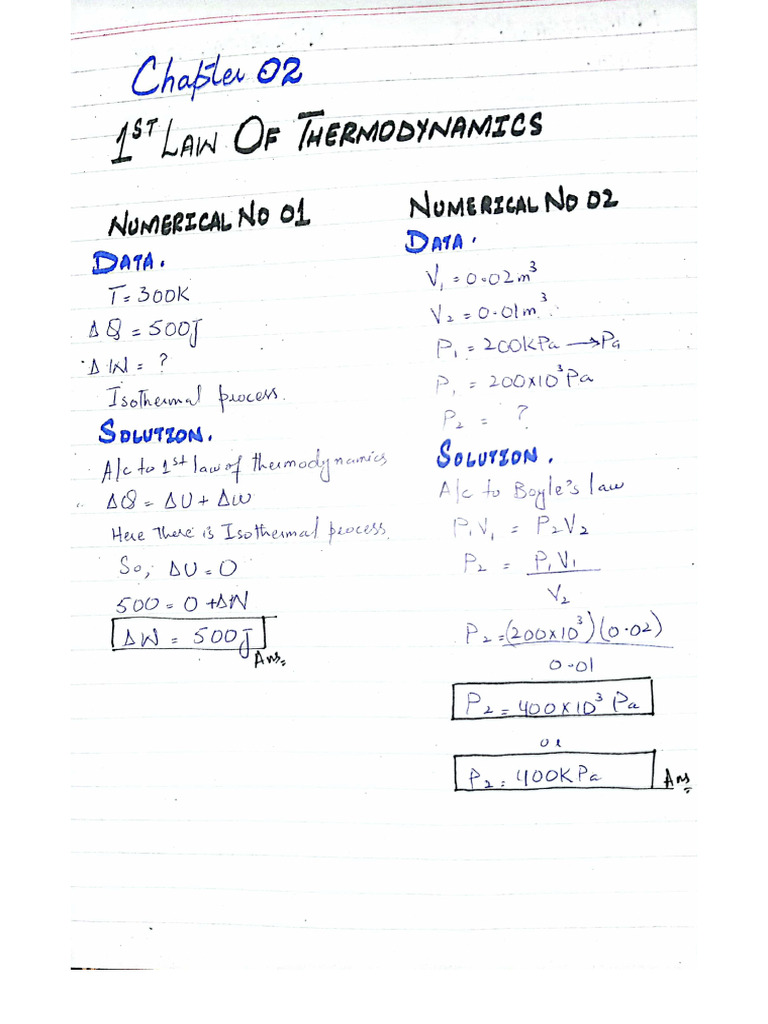 Chapter 02
1ST LAW OF THERMODYNAMICS
NUMERICAL NO 01
DATA.
T = 300K
ΔQ = 500J
ΔW = ?
Isothermal process.
SOLUTION.
A/c to 1st law of thermodynamics
ΔQ = ΔU + Δw
Here There is Isothermal process
So, ΔU = 0
500 = 0 + ΔW
ΔW = 500J
Ans.
NUMERICAL NO 02
DATA.
V₁ = 0.02m³
V₂ = 0.01m³.
P₁ = 200KPa → Pa
P₁ = 200x10³ Pa
P₂ = ?
SOLUTION.
A/c to Boyle's law
P₁V₁ = P₂V₂
P₂ = P₁V₁
V₂
P₂ = (200x10³)(0.02)
0.01
P₂ = 400x10³ Pa
or
P₂ = 400KPa Ans